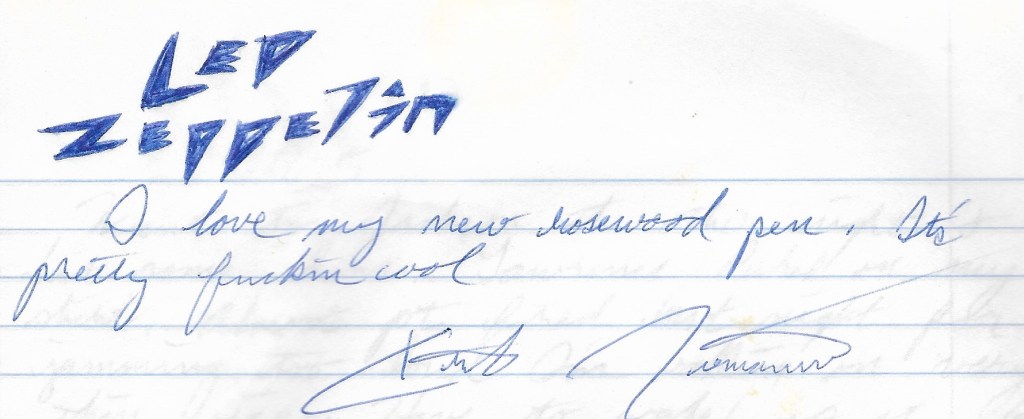 LED
ZEPPElin
I love my new rosewood pen. It's
pretty fuckin cool
Kurt